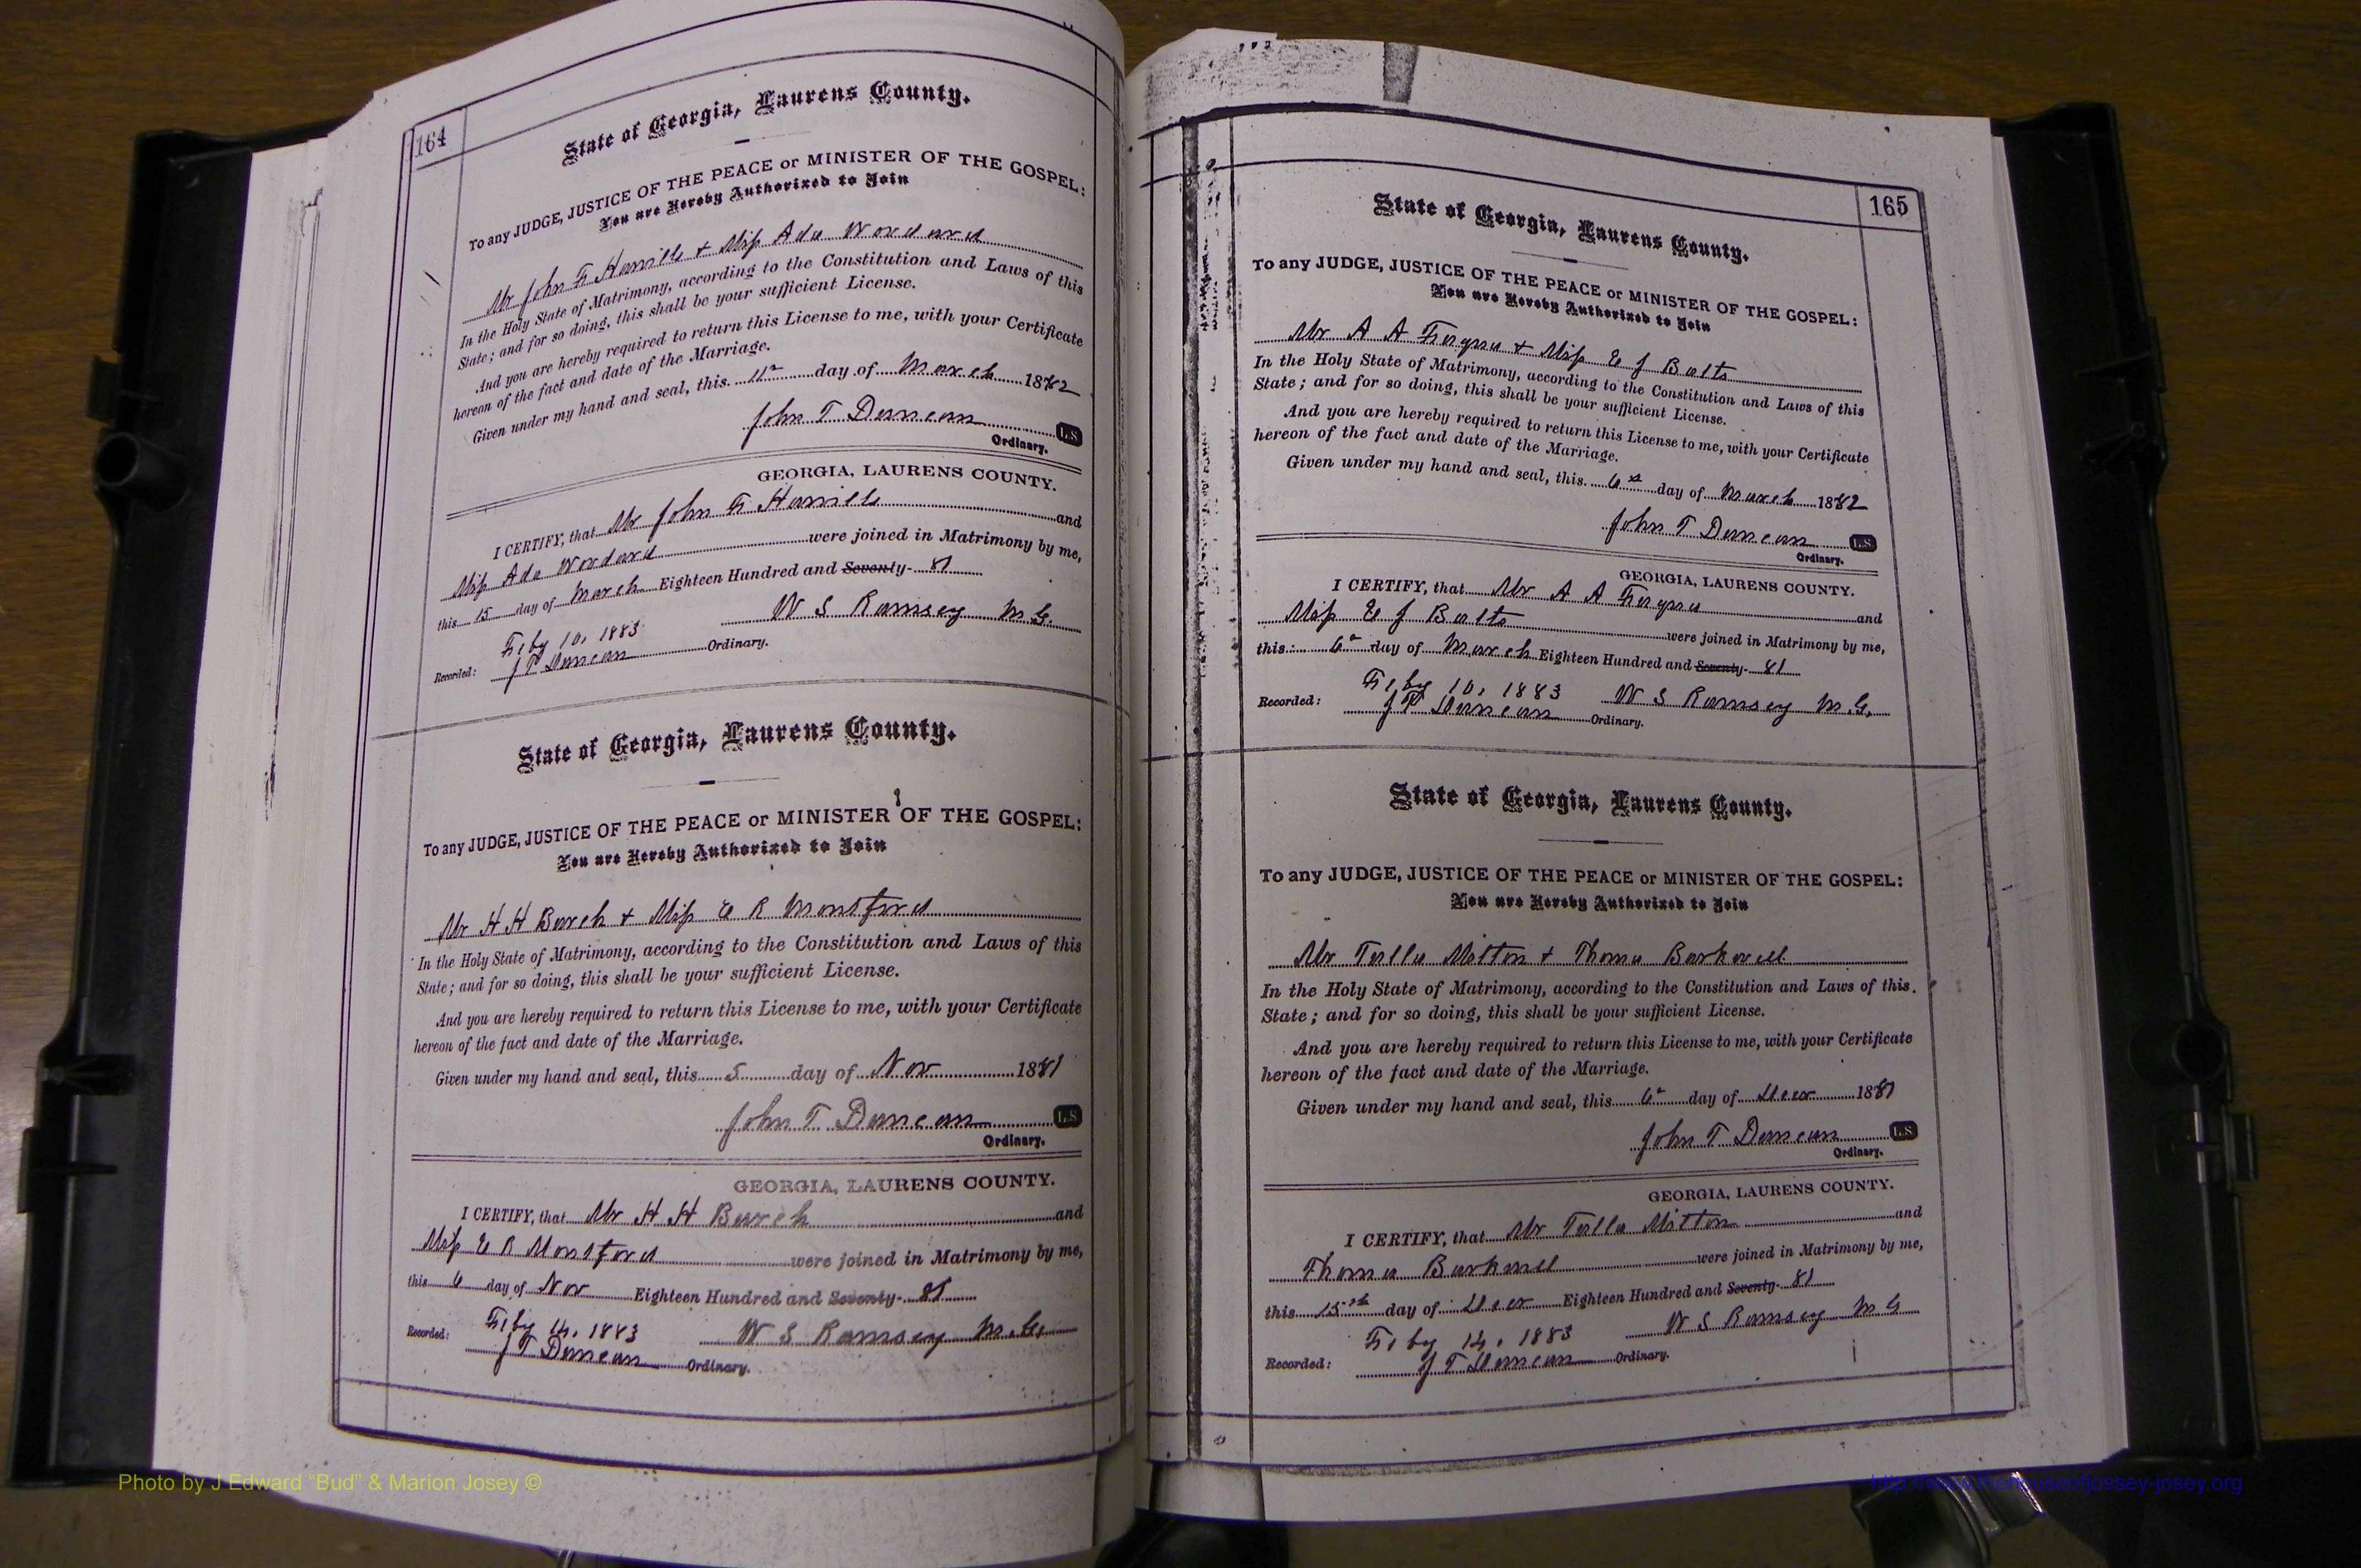 164
State of Georgia, Laurens County.
To any JUDGE, JUSTICE OF THE PEACE or MINISTER OF THE GOSPEL:
You are Hereby Authorized to Join
Mr John F Harrill & Miss Ada Woodard
In the Holy State of Matrimony, according to the Constitution and Laws of this
State; and for so doing, this shall be your sufficient License.
And you are hereby required to return this License to me, with your Certificate
hereon of the fact and date of the Marriage.
Given under my hand and seal, this 11th day of March 1882
John T Duncan L.S
Ordinary.
GEORGIA, LAURENS COUNTY.
I CERTIFY, that Mr John F Harrill and
Miss Ada Woodard were joined in Matrimony by me,
this 15 day of March Eighteen Hundred and Seventy- 81
W S Ramsey M.G.
Feby 10, 1883
Recorded: J T Duncan Ordinary.
State of Georgia, Laurens County.
To any JUDGE, JUSTICE OF THE PEACE or MINISTER OF THE GOSPEL:
You are Hereby Authorized to Join
Mr H H Burch & Miss E R Monsford
In the Holy State of Matrimony, according to the Constitution and Laws of this
State; and for so doing, this shall be your sufficient License.
And you are hereby required to return this License to me, with your Certificate
hereon of the fact and date of the Marriage.
Given under my hand and seal, this 5 day of Nov 1881
John T Duncan L.S
Ordinary.
GEORGIA, LAURENS COUNTY.
I CERTIFY, that Mr H H Burch and
Miss E R Monsford were joined in Matrimony by me,
this 6 day of Nov Eighteen Hundred and Seventy- 81
Feby 14, 1883 W S Ramsey M.G.
Recorded: J T Duncan Ordinary.
165
State of Georgia, Laurens County.
To any JUDGE, JUSTICE OF THE PEACE or MINISTER OF THE GOSPEL:
You are Hereby Authorized to Join
Mr A A & Miss E J Balts
In the Holy State of Matrimony, according to the Constitution and Laws of this
State; and for so doing, this shall be your sufficient License.
And you are hereby required to return this License to me, with your Certificate
hereon of the fact and date of the Marriage.
Given under my hand and seal, this 6th day of March 1882
John T Duncan L.S
Ordinary.
GEORGIA, LAURENS COUNTY.
I CERTIFY, that Mr A A and
Miss E J Balts were joined in Matrimony by me,
this 6th day of March Eighteen Hundred and Seventy- 81
Feby 10, 1883 W S Ramsey M.G.
Recorded: J T Duncan Ordinary.
State of Georgia, Laurens County.
To any JUDGE, JUSTICE OF THE PEACE or MINISTER OF THE GOSPEL:
You are Hereby Authorized to Join
Mr Tulla Mitton & Thoma
In the Holy State of Matrimony, according to the Constitution and Laws of this
State; and for so doing, this shall be your sufficient License.
And you are hereby required to return this License to me, with your Certificate
hereon of the fact and date of the Marriage.
Given under my hand and seal, this 6th day of Decr 1881
John T Duncan L.S
Ordinary.
GEORGIA, LAURENS COUNTY.
I CERTIFY, that Mr Tulla Mitton and
Thoma were joined in Matrimony by me,
this 15th day of Decr Eighteen Hundred and Seventy- 81
Feby 14, 1883 W S Ramsey M G
Recorded: J T Duncan Ordinary.
Photo by J Edward "Bud" & Marion Josey ©
http://www.thehouseofjossey-josey.org